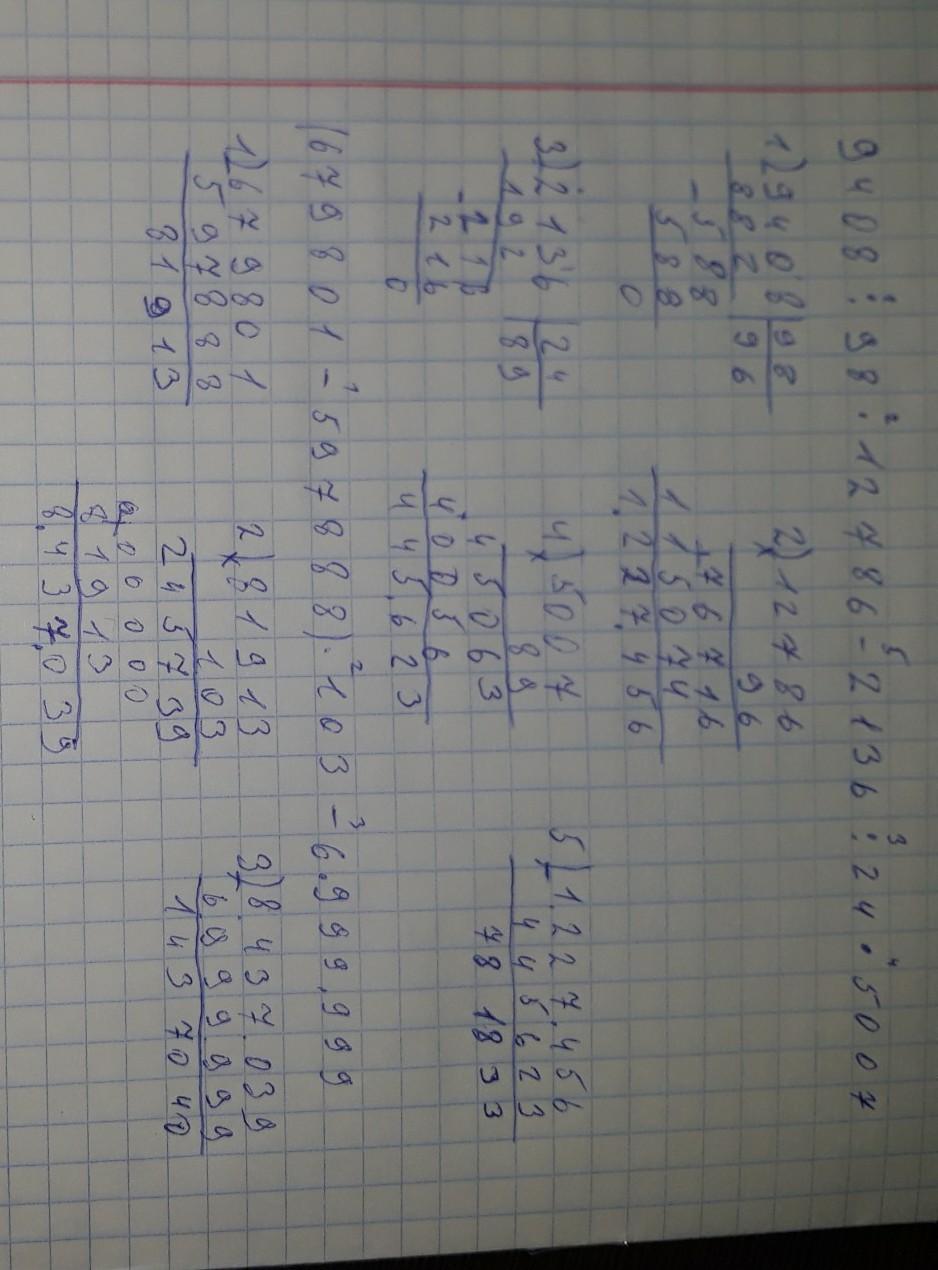 9408 : 98 ·² 12786 -⁵ 2136 :³ 24 ·⁴ 5007
1) 9408 | 98
882 | 96
-588
588
0
2) × 12786
96
+ 76716
115074
1.227.456
3) 2136 | 24
192 | 89
-216
216
0
4) × 5007
89
45063
40056
445.623
5) 1.227.456
445623
781833
(679801 -¹ 597888) ·² 103 -³ 6.999.999
1) 679801
597888
81913
2) × 81913
103
245739
00000
81913
8.437.039
3) 8.437.039
6.999999
1437040